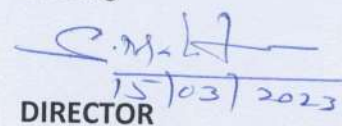 15/03/2023
DIRECTOR